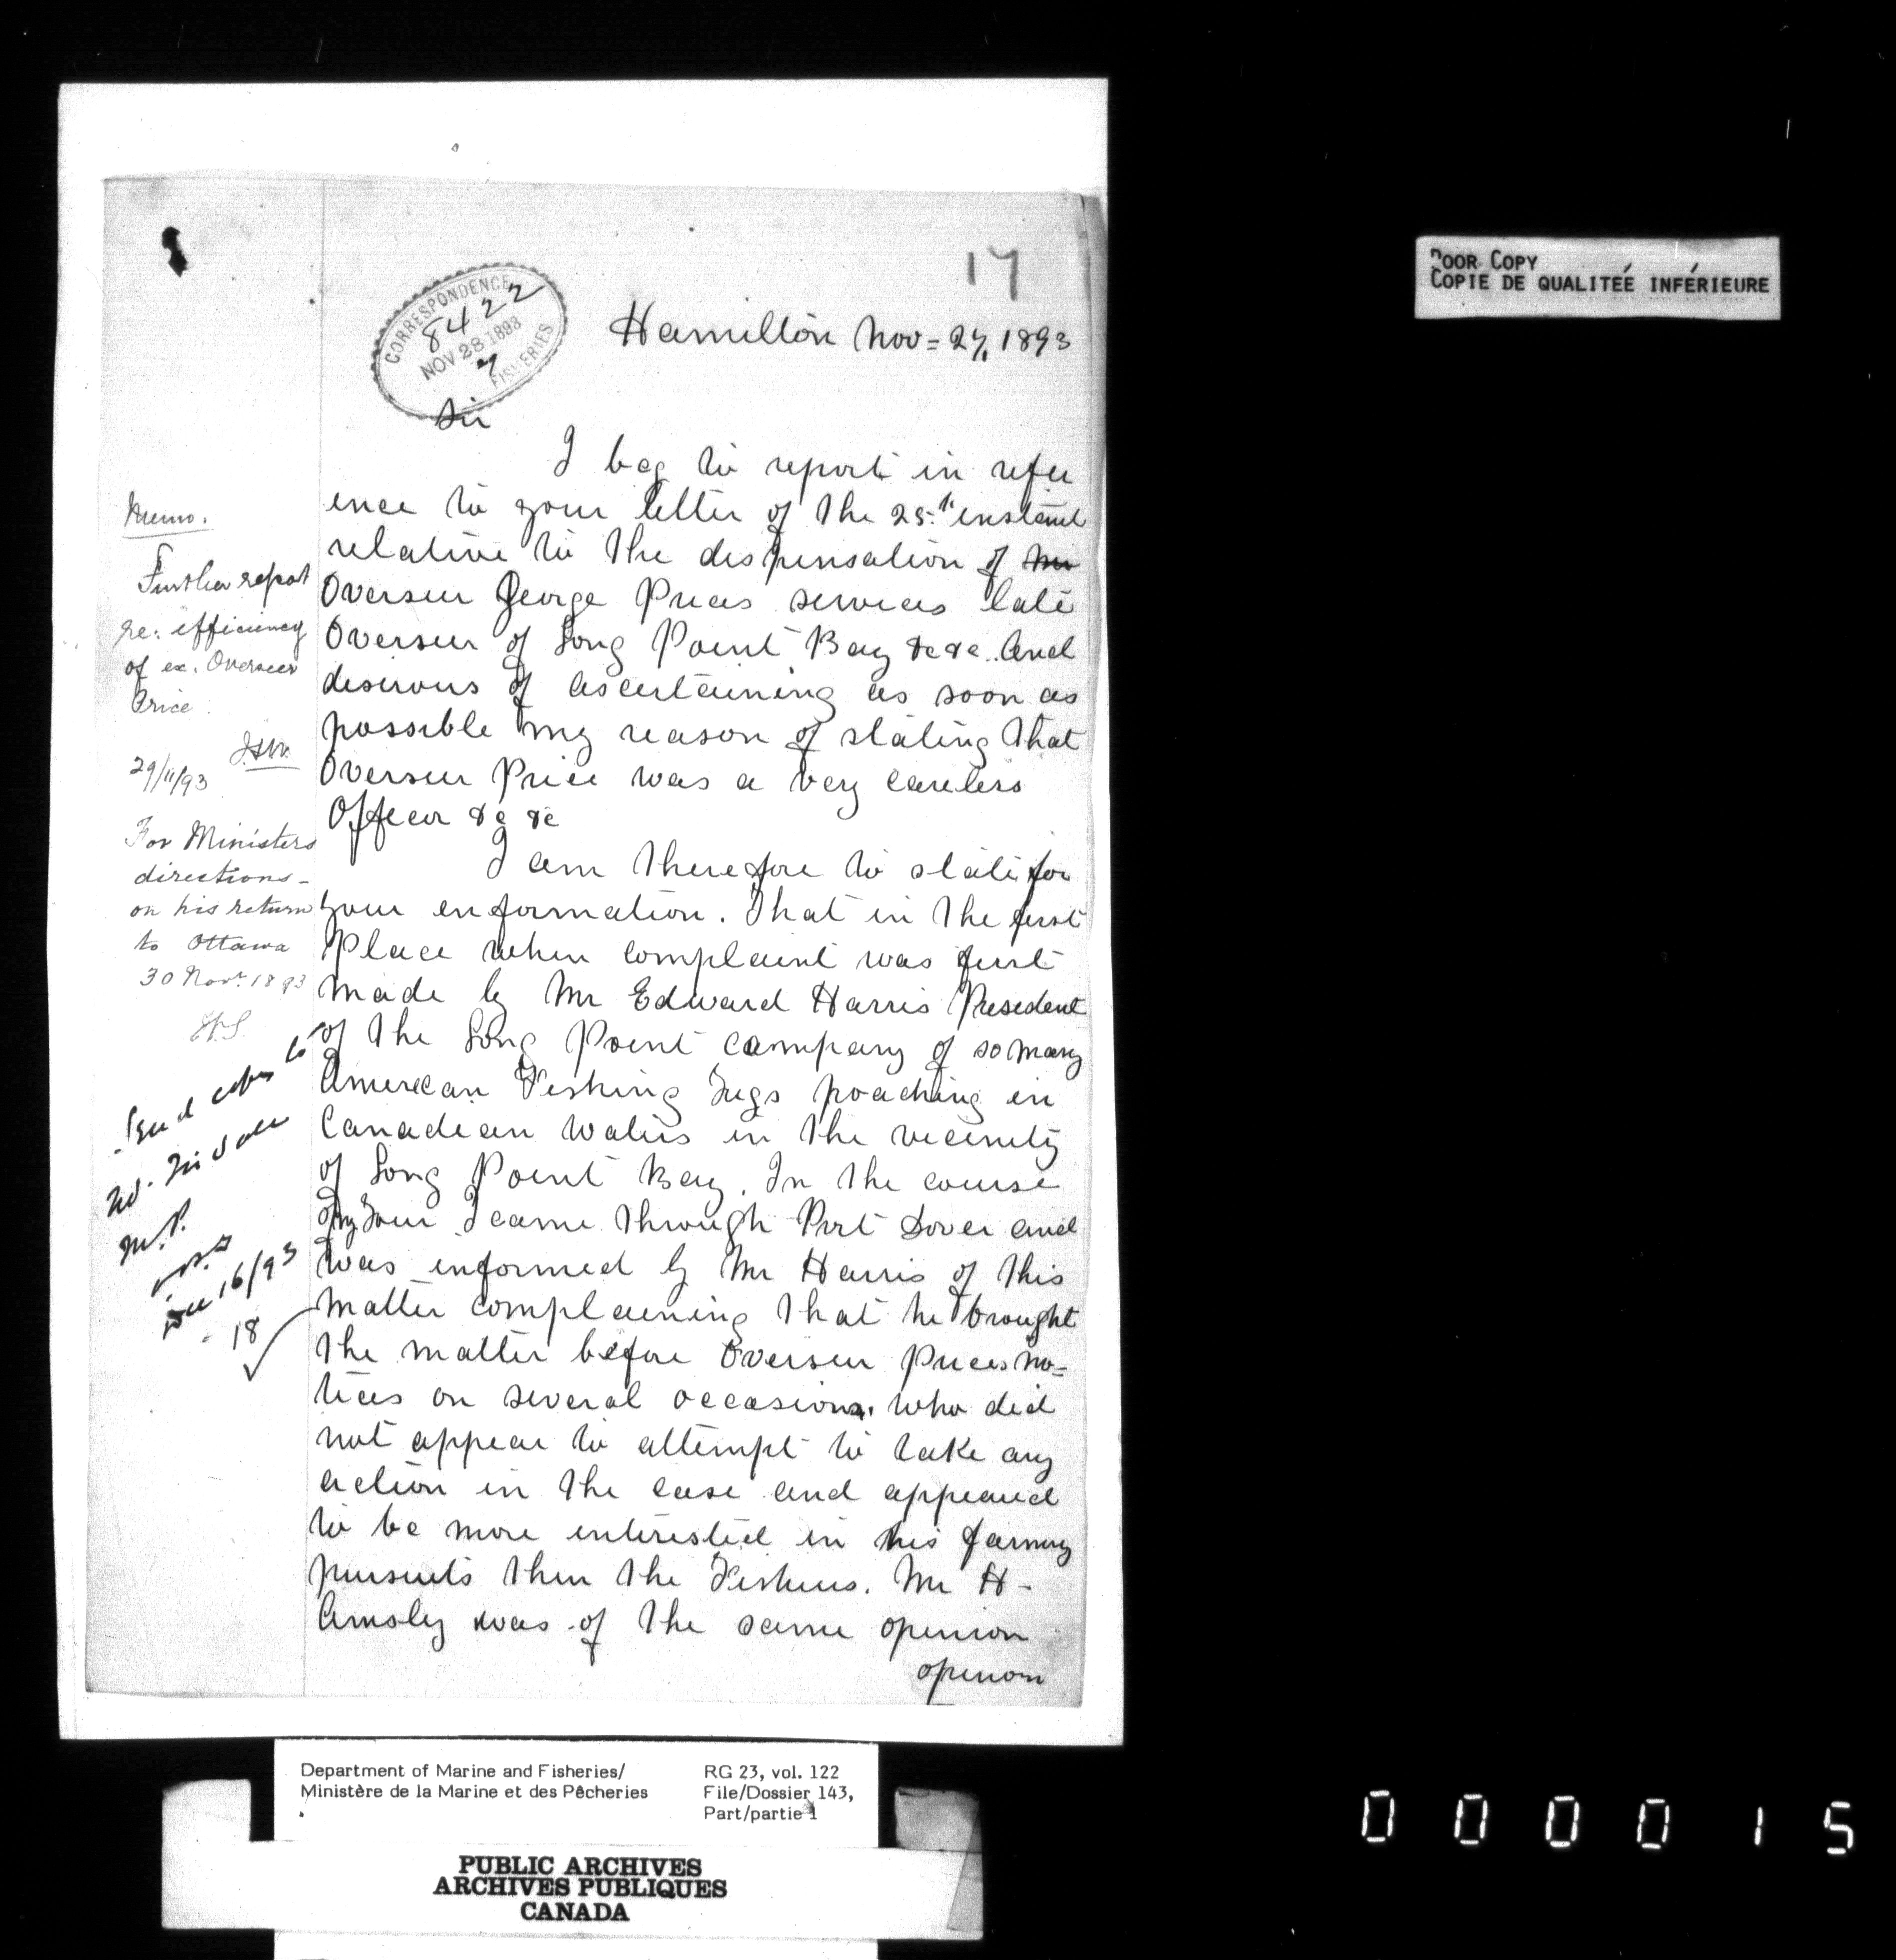 17
CORRESPONDENCE
8422
NOV 28 1893
FISHERIES
Hamilton Nov = 27, 1893
Sir
I beg to report in refer
ence to your letter of the 25th instant
relative to the dispensation of Mr
Overseer George Prices services late
Overseer of Long Point Bay &c &c. And
desirous of ascertaining as soon as
possible my reason of stating that
Overseer Price was a very careless
Officer &c &c
I am therefore to state for
your information. That in the first
Place when complaint was first
made by Mr Edward Harris President
of the Long Point Company of so many
American Fishing Tugs poaching in
Canadian Waters in the vicinity
of Long Point Bay. In the course
of my Tour I came through Port Dover and
was informed by Mr Harris of this
matter complaining that he brought
the matter before Overseer Prices no=
tices on several occasions. Who did
not appear to attempt to take any
action in the case and appeared
to be more interested in his farming
pursuits then the Fisheries. Mr H-
Amsley was of the same openion
openion
Memo.
Further report
re: efficiency
of ex. Overseer
Price.
29/11/93
For Ministers
directions -
on his return
to Ottawa
30 Novr. 1893
Send copies to
W. Tisdale
M.P.
Dec 16/93
18
POOR COPY
COPIE DE QUALITEÉ INFÉRIEURE
Department of Marine and Fisheries/
Ministère de la Marine et des Pêcheries
RG 23, vol. 122
File/Dossier 143,
Part/partie 1
PUBLIC ARCHIVES
ARCHIVES PUBLIQUES
CANADA
000015